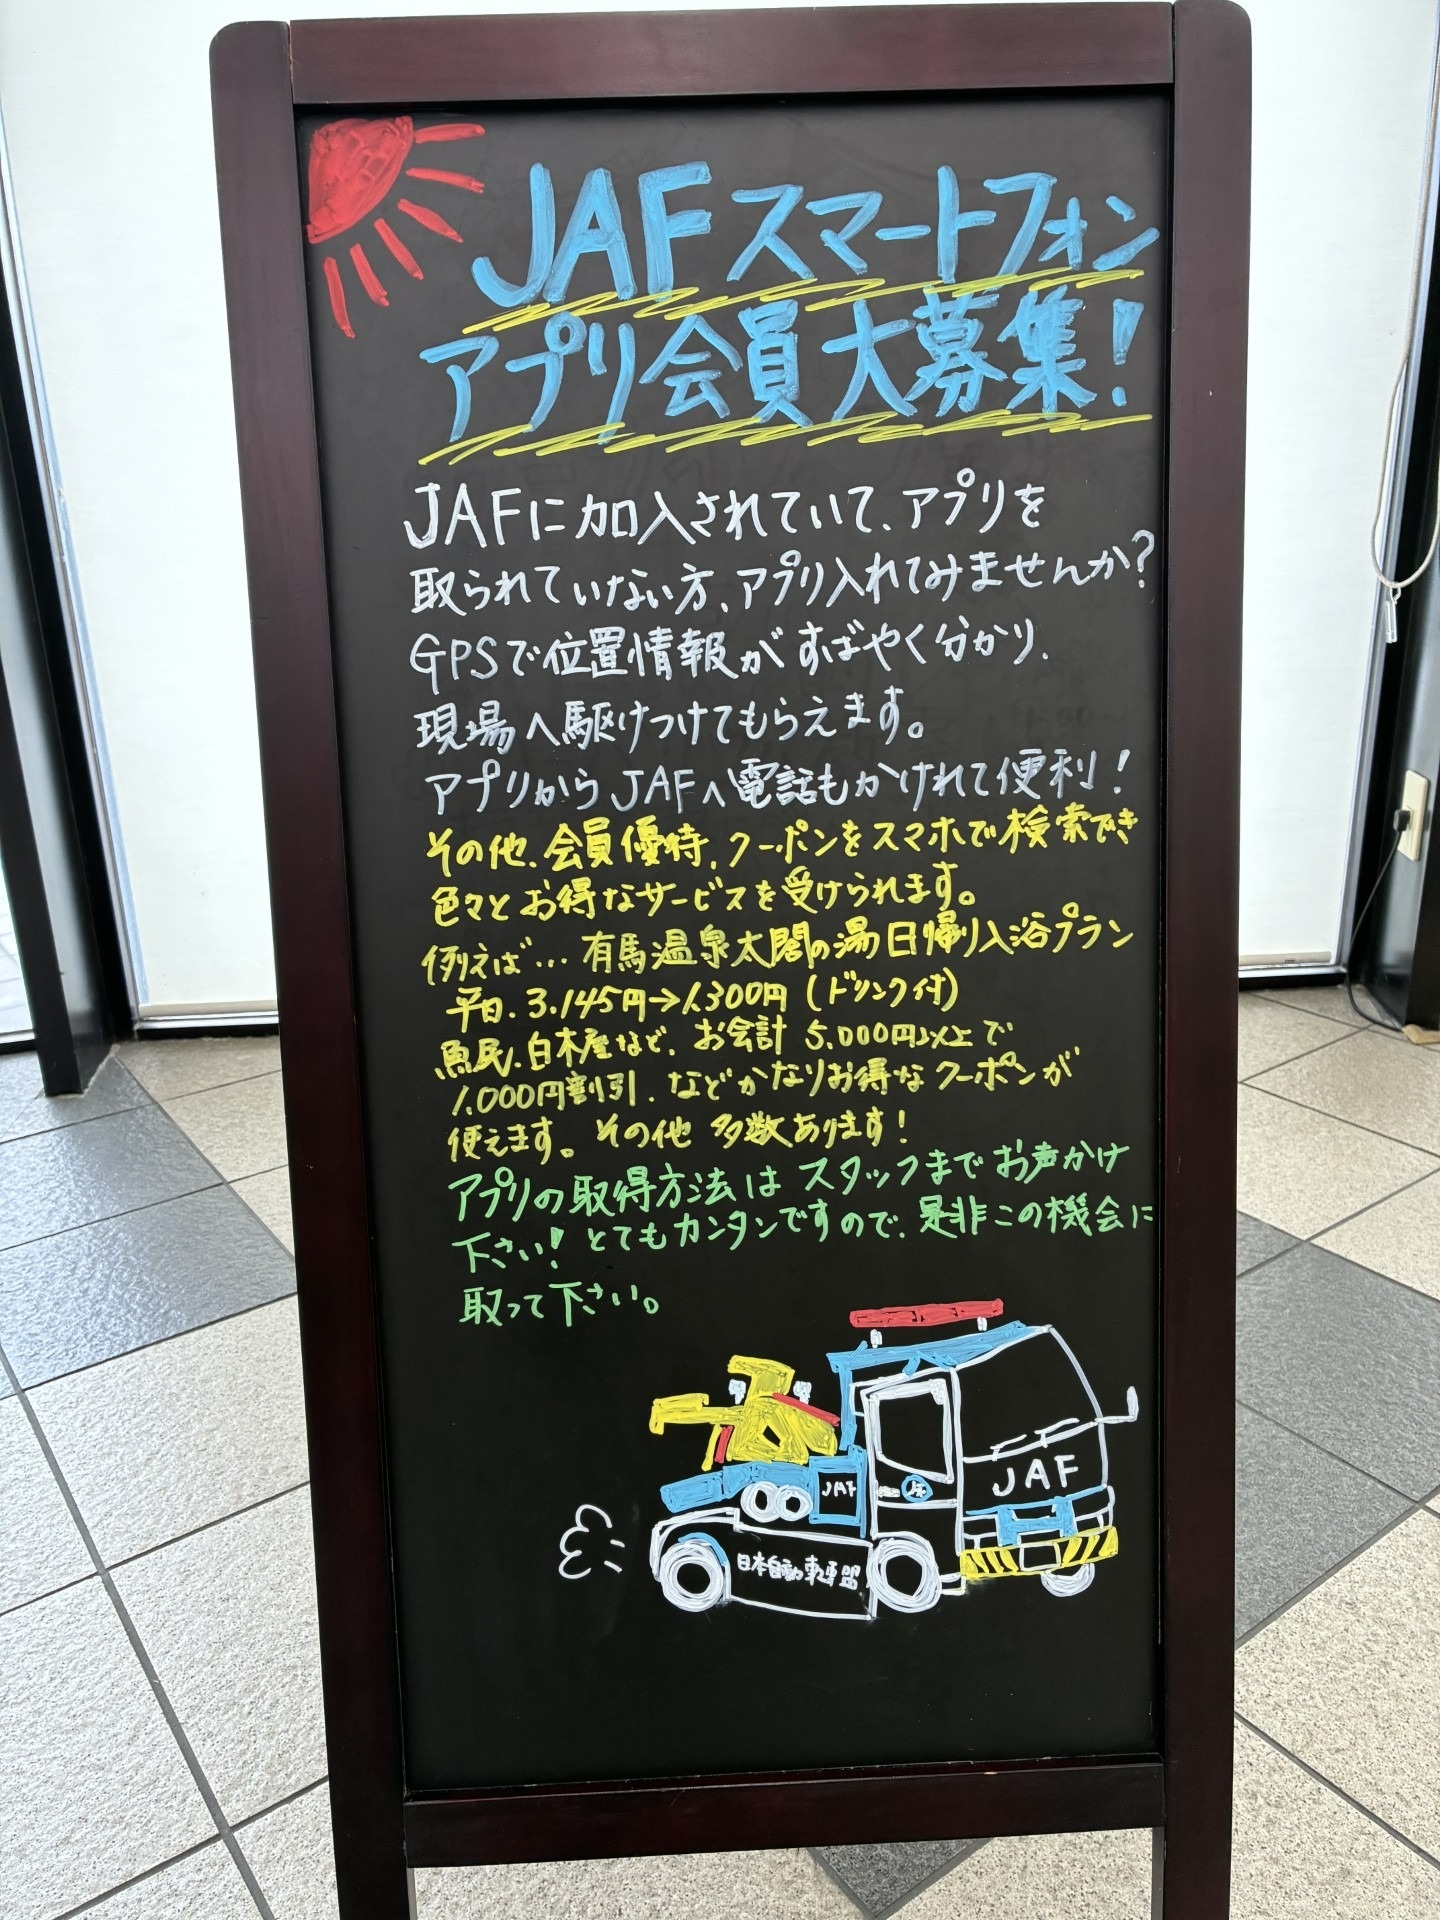 JAFスマートフォン
アプリ会員大募集!
JAFに加入されていて、アプリを
取られていない方、アプリ入れてみませんか?
GPSで位置情報がすばやく分かり、
現場へ駆けつけてもらえます。
アプリからJAFへ電話もかけれて便利!
その他、会員優待、クーポンをスマホで検索でき
色々とお得なサービスを受けられます。
例えば…有馬温泉太閤の湯日帰り入浴プラン
平日、3.145円→1.300円(ドリンク付)
魚民、白木屋など、お会計5.000円以上で
1.000円割引、などかなりお得なクーポンが
使えます。その他 多数あります!
アプリの取得方法はスタッフまでお声かけ
下さい!とてもカンタンですので、是非この機会に
取って下さい。
JAF
JAF
日本自動車連盟